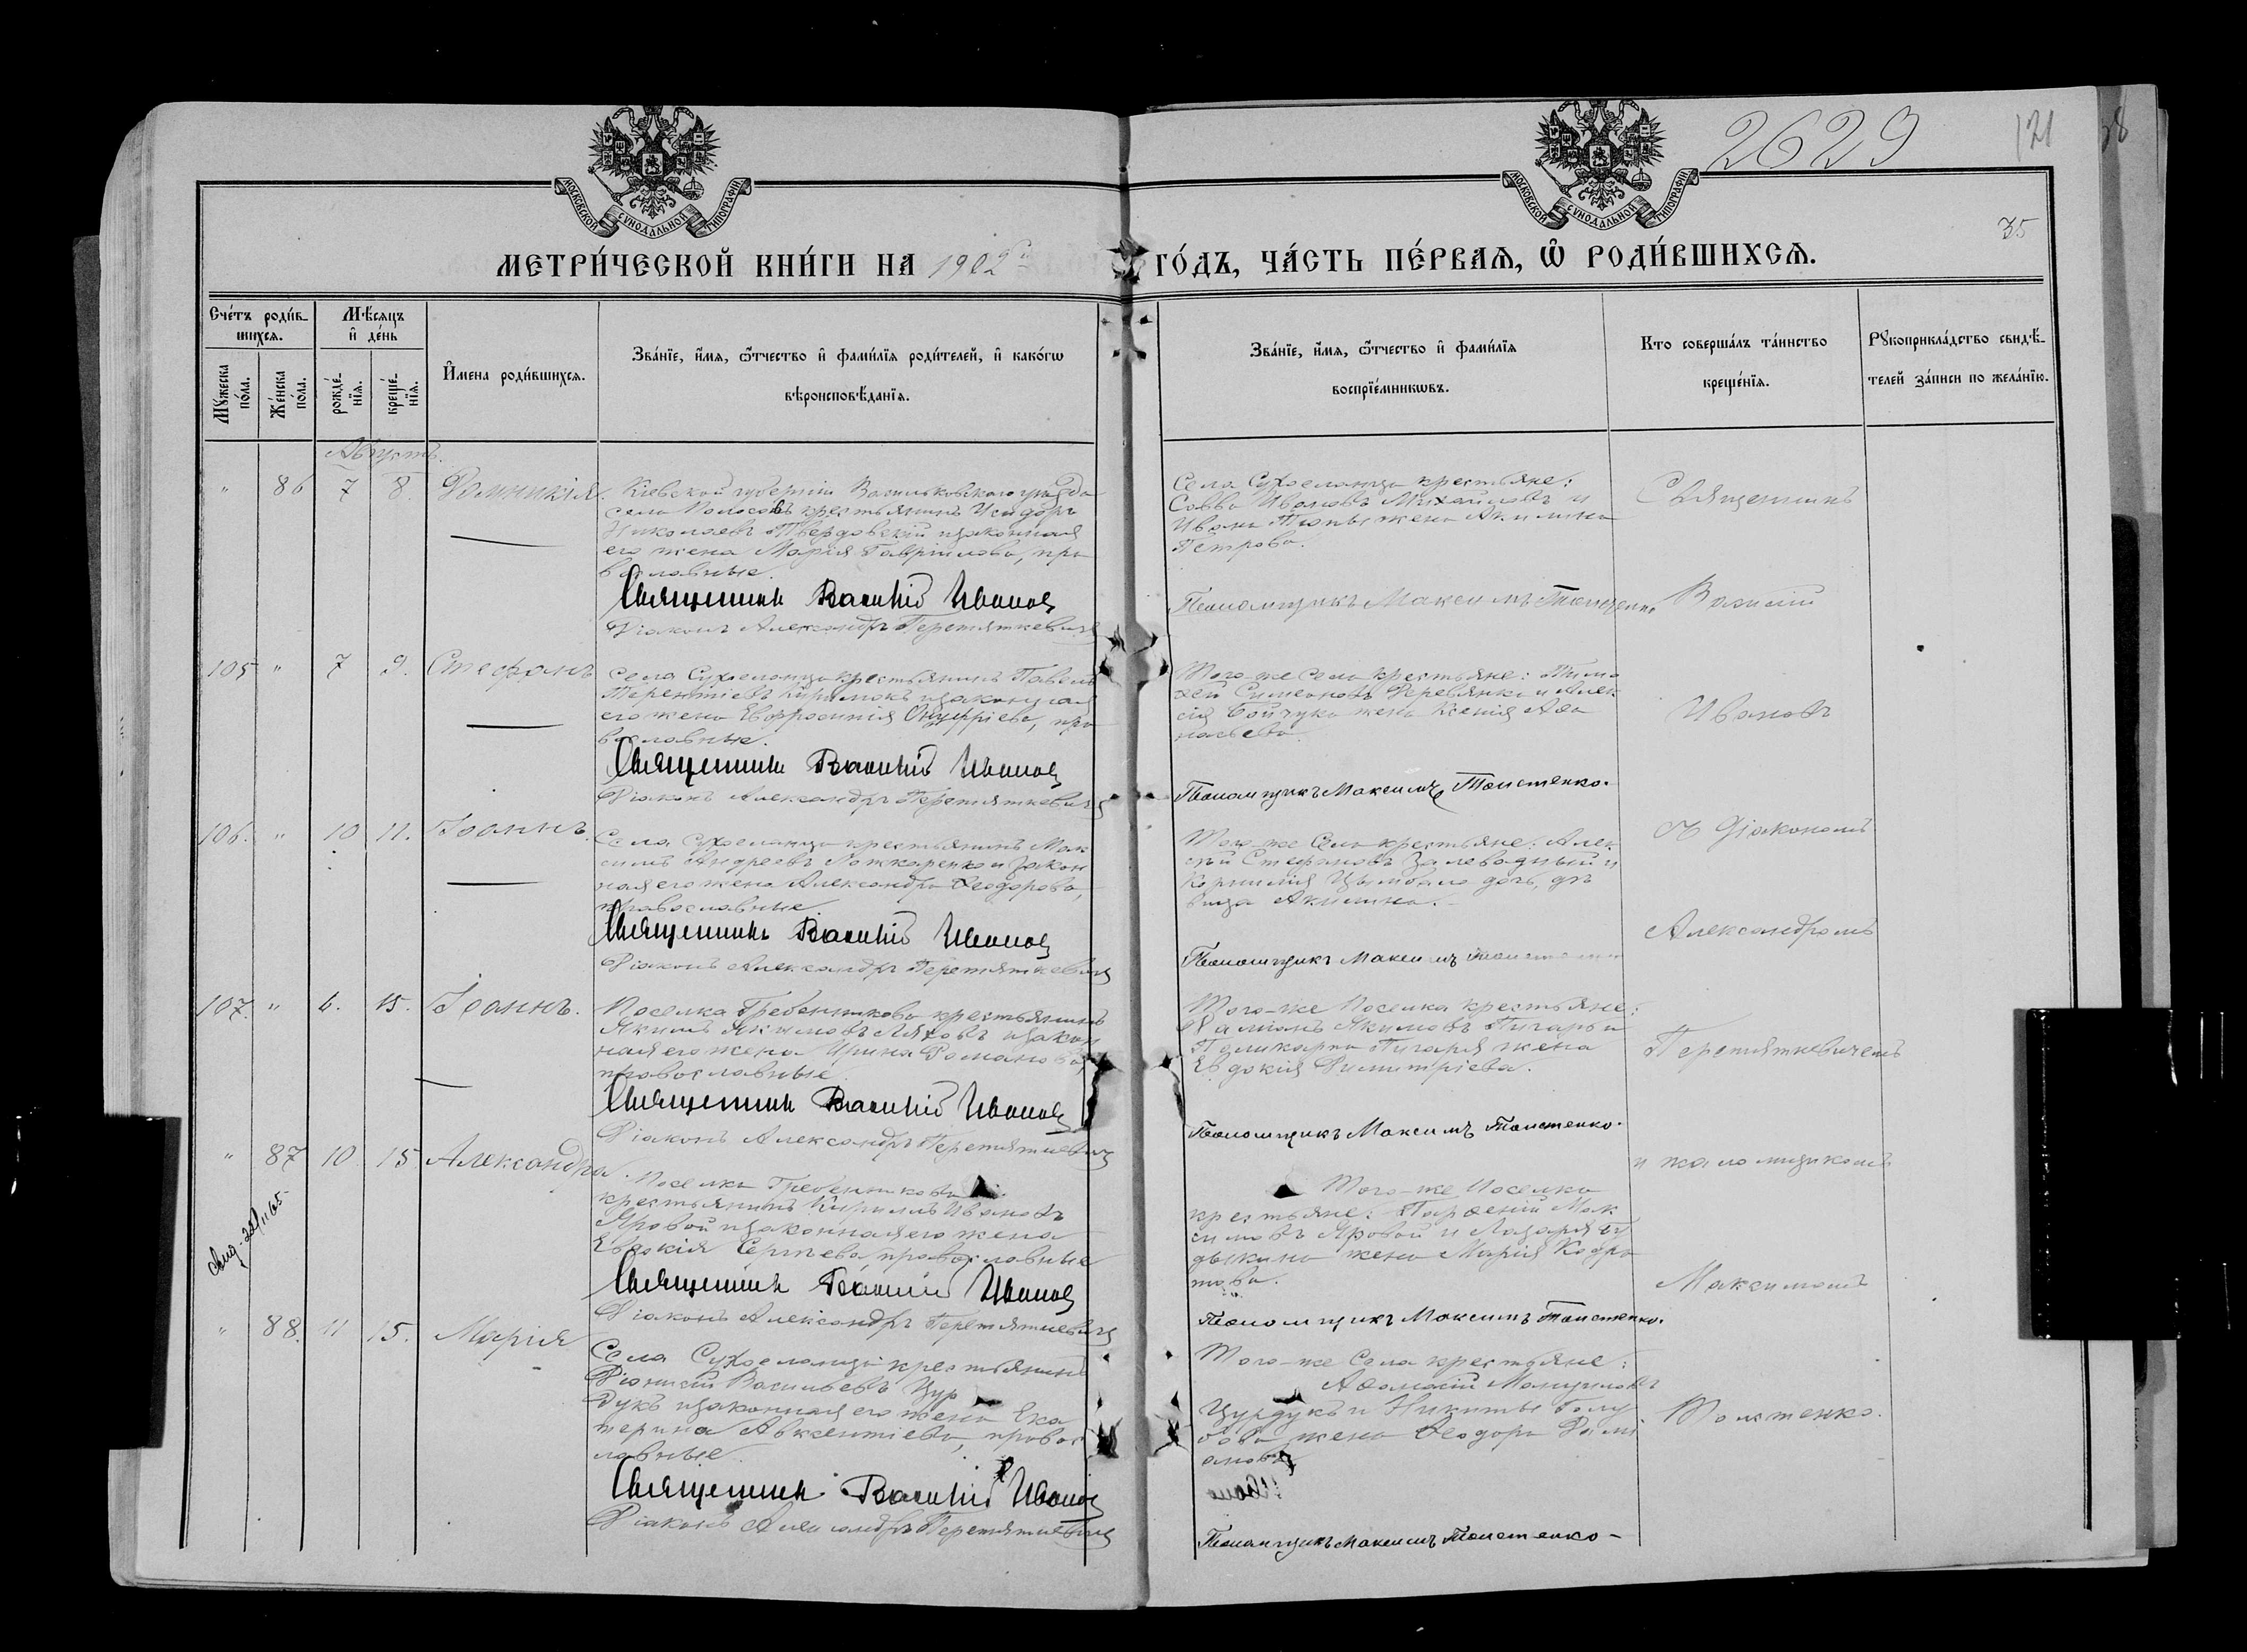 2629
121
38
МОСКОВСКОЙ СѴНОДАЛЬНОЙ ТИПОГРАФІИ
МОСКОВСКОЙ СѴНОДАЛЬНОЙ ТИПОГРАФІИ
35
МЕТРИ́ЧЕСКОЙ КНИ́ГИ НА 1902й
ГО́ДЪ, ЧА́СТЬ ПЕ́РВАѦ, Ѡ҆ РОДИ́ВШИХСѦ.
Сче́тъ роди́в-
шихсѧ.
Мꙋ́жеска по́ла.
Же́нска по́ла.
Мѣ́сѧцъ
и҆ де́нь
рожде́-нїѧ.
креще́-нїѧ.
И҆мена роди́вшихсѧ.
Зва́нїе, и҆́мѧ, ѻ҆́тчество и҆ фами́лїѧ роди́телей, и҆ како́гѡ
вѣроисповѣ́данїѧ.
Зва́нїе, и҆́мѧ, ѻ҆́тчество и҆ фами́лїѧ
воспрїе́мникѡвъ.
Кто соверша́лъ та́инство
креще́нїѧ.
Рꙋкоприкла́дство свидѣ́-
телей за́писи по жела́нїю.
Августъ.
" 86 7 8. Домникія.
Кіевской губерніи Васильковскаго уѣзда
села крестьянинъ Исидоръ
Николаевъ Твердовскій и законная
его жена Марія Гавріилова, пра
вославные.
Священникъ Василій Ивановъ
Діаконъ Александръ Перетяткевичъ
Села Сухоеланца крестьяне:
Савва Ивановъ Михайловъ и
Ивана жена Акилина
Петрова.
Псаломщикъ Максимъ Толстенко
Священникъ
Василій
105 " 7 9. Стефанъ
Села Сухоеланца крестьянинъ Павелъ
Терентіевъ и законная
его жена Евфросинія Онуфріева, пра
вославные.
Священникъ Василій Ивановъ
Діаконъ Александръ Перетяткевичъ
Того-же Села крестьяне: Тимо
фей Симеоновъ Деревянко и Алек
сія Бойчука жена Ксенія Афа
насьева.
Псаломщикъ Максимъ Толстенко.
Ивановъ
106. " 10 11. Іоаннъ.
Села Сухоеланца крестьянинъ Мак
симъ Андреевъ и закон
ная его жена Александра Ѳеодорова,
православные.
Священникъ Василій Ивановъ
Діаконъ Александръ Перетяткевичъ
Того-же Села крестьяне: Алек
сѣй Стефановъ Залеводный и
Корнилія Цымбала дочь, дѣ
вица Акилина.
Псаломщикъ Максимъ Толстенко
съ Діакономъ
Александромъ
107. " 6. 15. Іоаннъ.
Поселка Гребенникова крестьянинъ
Якимъ Якимовъ Ляховъ и закон
ная его жена Ирина Романова,
православные.
Священникъ Василій Ивановъ
Діаконъ Александръ Перетяткевичъ
Того-же Поселка крестьяне:
Даміанъ Якимовъ Пигарь и
Поликарпа Пигаря жена
Евдокія Димитріева.
Псаломщикъ Максимъ Толстенко.
Перетяткевичемъ
" 87 10 15 Александра.
Поселка Гребенникова
крестьянинъ Кириллъ Ивановъ
Яровой и законная его жена
Евдокія Сергѣева, православные
Священникъ Василій Ивановъ
Діаконъ Александръ Перетяткевичъ
Того-же Поселка
крестьяне: Парѳеній Мак
симовъ Яровой и Лазаря Бу
дыкина жена Марія Кодра
това.
Псаломщикъ Максимъ Толстенко.
и псаломщикомъ
Максимомъ
" 88. 11 15. Марія
Села Сухоеланца крестьянинъ
Діонисій Васильевъ Цур
дукъ и законная его жена Ека
терина Авксентіева, правос
лавные.
Священникъ Василій Ивановъ
Діаконъ Александръ Перетяткевичъ
Того-же Села крестьяне:
Аѳанасій
Цурдукъ и Никиты Голу
бова жена Ѳеодора Дами
анова
Псаломщикъ Максимъ Толстенко
Толстенко.